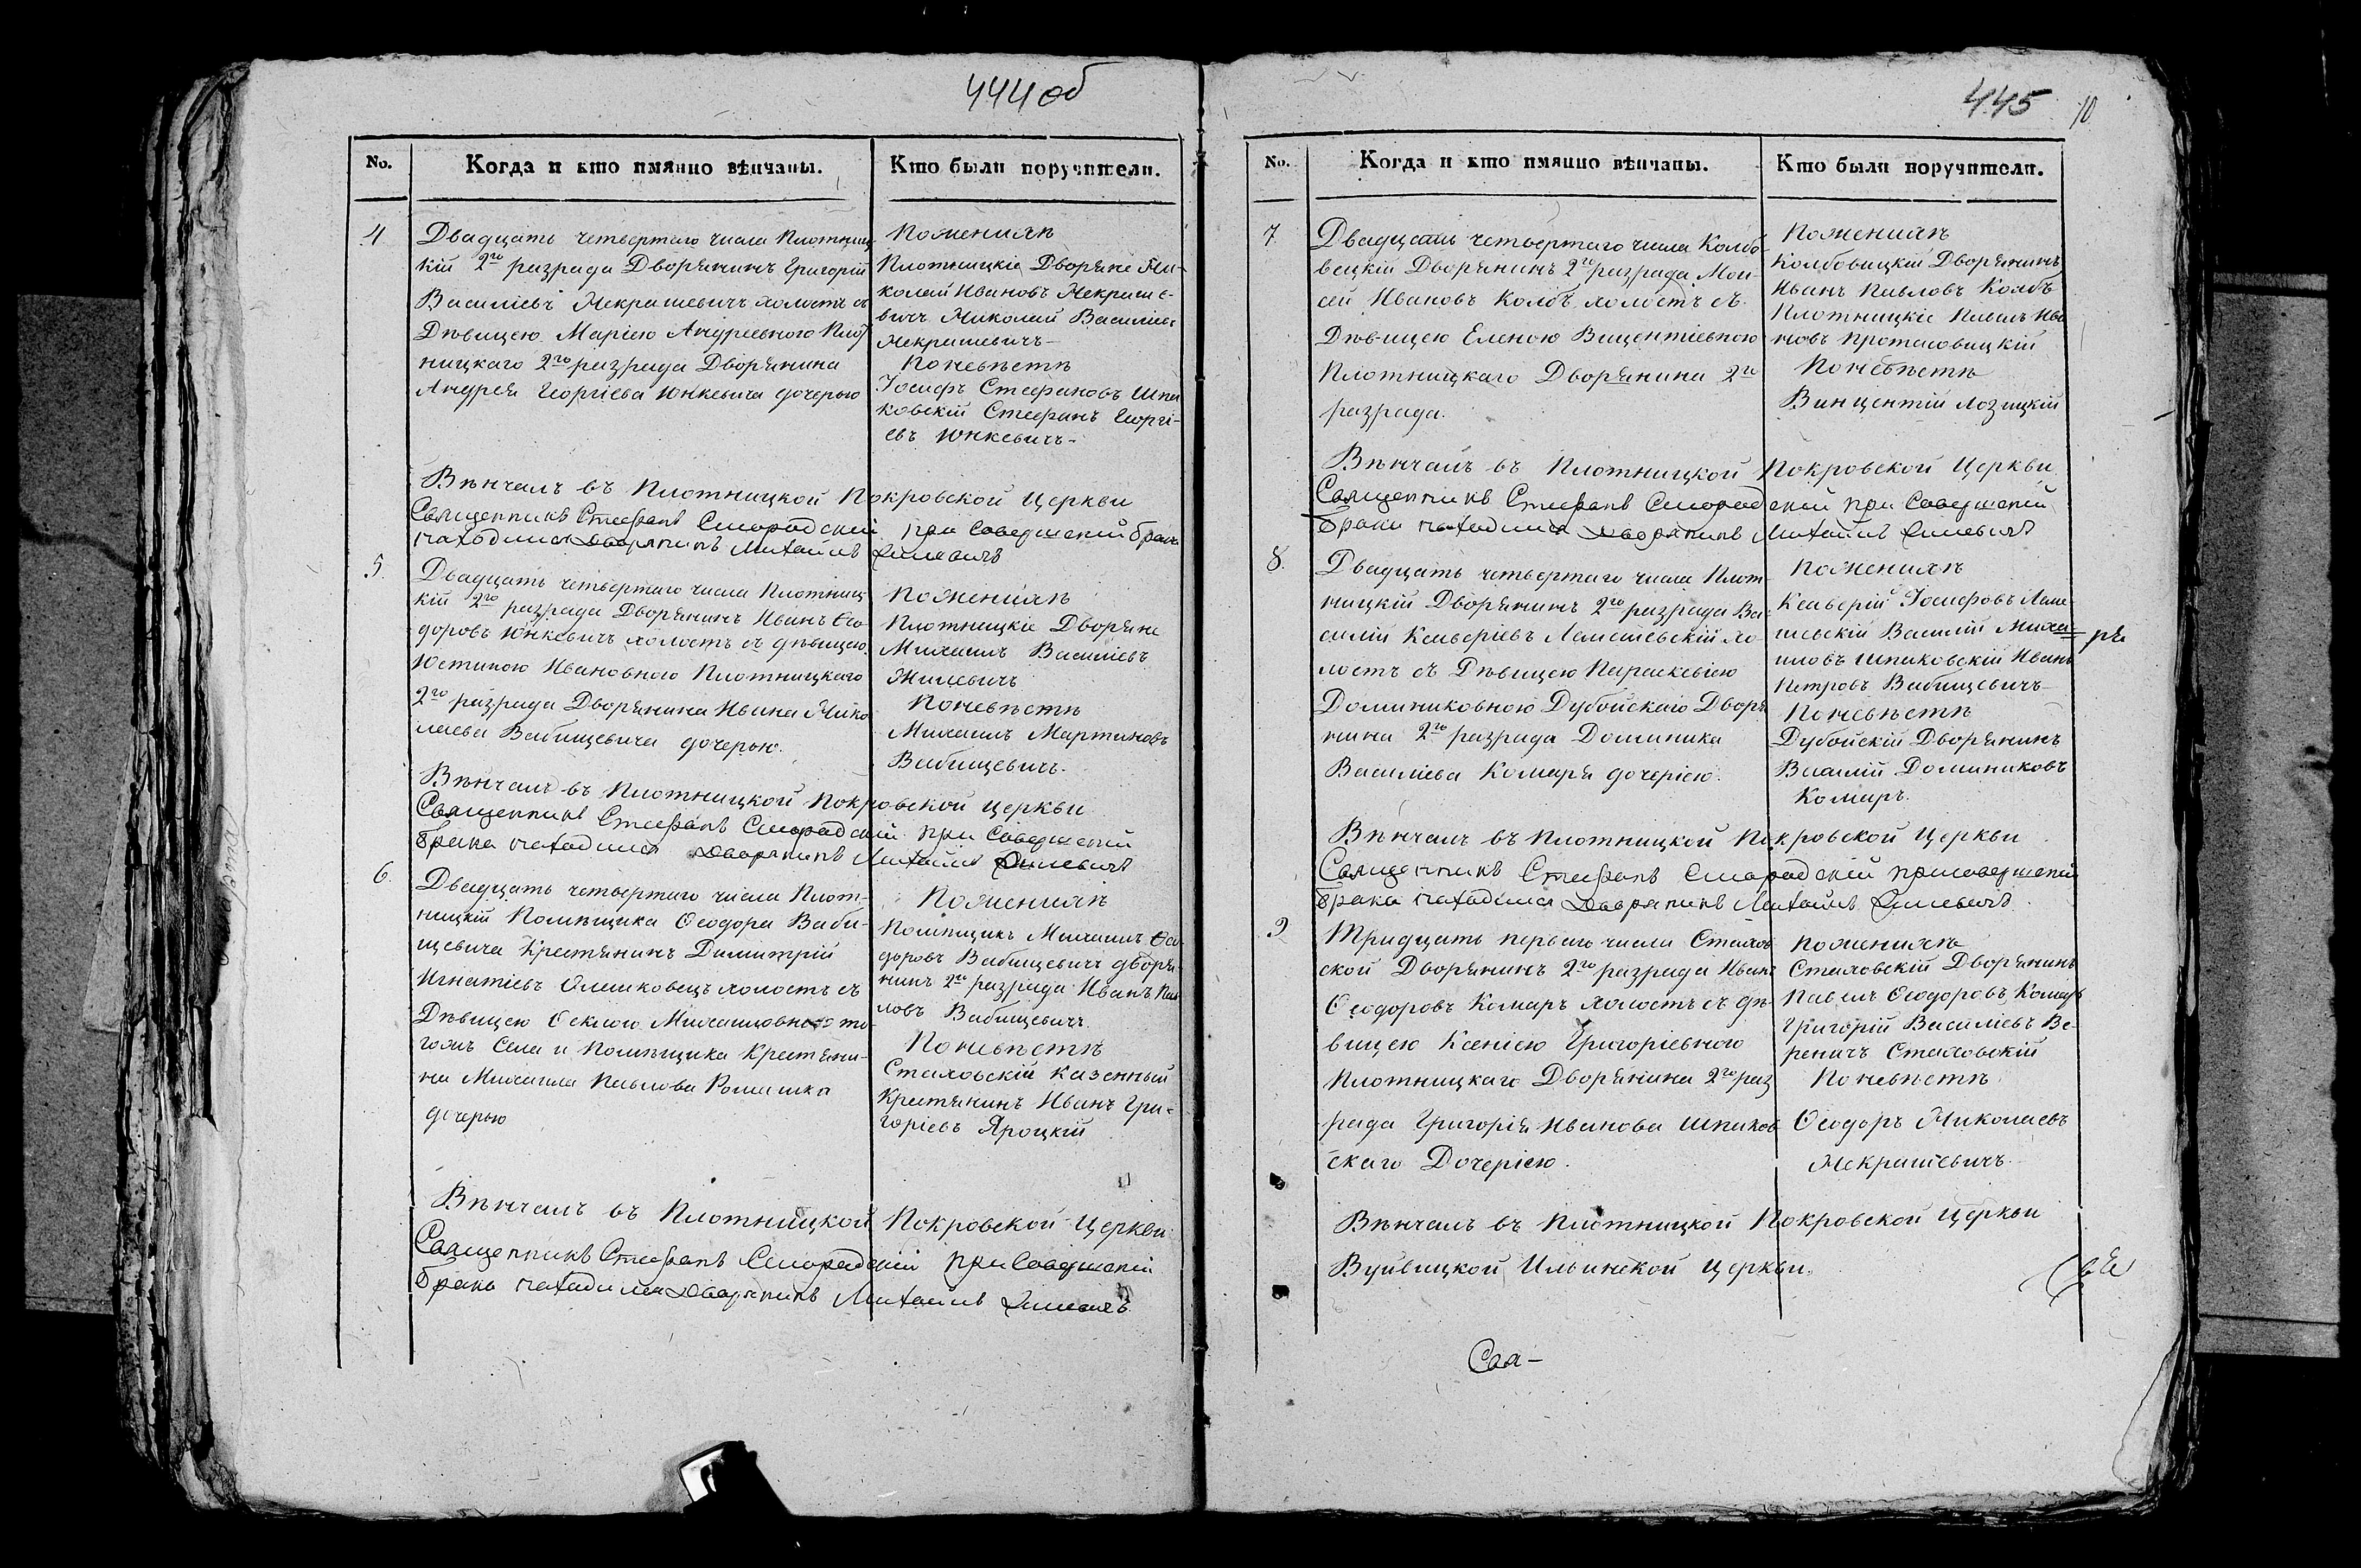 444 об
No.
Когда и кто имянно вѣнчаны.
Кто были поручители.
4
Двадцать четвертаго числа Плотниц-
кій 2го разряда Дворянинъ Григорій
Василіевъ Некрашевичъ холостъ съ
Дѣвицею Маріею Андреевною Плот
ницкаго 2го разряда Дворянина
Андрея Георгіева Юнкевича дочерью
По женихѣ
Плотницкіе Дворяне Ни-
колай Ивановъ Некраше-
вичъ Николай Василіевъ
Некрашевичъ
По невѣстѣ
Іосифъ Стефановъ Шпа
ковскій Стефанъ Георгі-
евъ Юнкевичъ
Вѣнчалъ въ Плотницкой Покровской Церкви
Священникъ Стефанъ Смородскій при Совершеніи брака
находился Дворянинъ Михаилъ
5.
Двадцать четвертаго числа Плотниц
кій 2го разряда Дворянинъ Иванъ Ѳео-
доровъ Юнкевичъ холостъ съ дѣвицею
Юстиною Ивановною Плотницкаго
2го разряда Дворянина Ивана Нико
лаева Бабищевича дочерью.
По женихѣ
Плотницкіе Дворяне
Михаилъ Василіевъ
По невѣстѣ
Михаилъ Мартиновъ
Бабищевичъ.
Вѣнчалъ въ Плотницкой Покровской Церкви
Священникъ Стефанъ Смородскій при Совершеніи
брака находился Дворянинъ Михаилъ
6.
Двадцать четвертаго числа Плот-
ницкій Помѣщика Ѳеодора Баби-
щевича Крестянинъ Димитрій
Игнатіевъ Олешковецъ холостъ съ
Дѣвицею Ѳеклою Михаиловною то-
гожъ Села и Помѣщика Крестяни-
на Михаила Павлова Ромашка
дочерью
По женихѣ
Помѣщикъ Михаилъ Ѳео-
доровъ Бабищевичъ дворя-
нинъ 2го разряда Иванъ Пав
ловъ Бабищевичъ
По невѣстѣ
Стаховскій казенный
Крестянинъ Иванъ Гри-
горіевъ Яроцкій
Вѣнчалъ въ Плотницкой Покровской Церкви
Священникъ Стефанъ Смородскій при Совершеніи
брака находился Дворянинъ Михаилъ
445
10
No.
Когда и кто имянно вѣнчаны.
Кто были поручители.
7
Двадцать четвертаго числа Колбо-
вицкій Дворянинъ 2го разряда Мои-
сей Ивановъ Колбъ холостъ съ
Дѣвицею Еленою Вицентіевною
Плотницкаго Дворянина 2го
разряда.
По женихѣ
Колбовицкій Дворянинъ
Иванъ Павловъ Колбъ
Плотницкіе Павелъ Ива
новъ Протасовицкій
По невѣстѣ
Винцентій Лозицкій
Вѣнчалъ въ Плотницкой Покровской Церкви
Священникъ Стефанъ Смородскій при Совершеніи
брака находился Дворянинъ Михаилъ
8.
Двадцать четвертаго числа Плот-
ницкій Дворянинъ 2го разряда Ва-
силій Ксаверіевъ Лемешевскій хо-
лостъ съ Дѣвицею Параскевіею
Доминиковною Дубойскаго Дворя
нина 2го разряда Доминика
Василіева Комаря дочеріею.
По женихѣ
Ксаверій Іосифовъ Леме-
шевскій Василій Миха-
иловъ Шпаковскій Иванъ
Петровъ Бабищевичъ
По невѣстѣ
Дубойскій Дворянинъ
Василій Доминиковъ
Комаръ.
Вѣнчалъ въ Плотницкой Покровской Церкви
Священникъ Стефанъ Смородскій при совершеніи
брака находился Дворянинъ Михаилъ
9
Тридцать перваго числа Стахов
ской Дворянинъ 2го разряда Иванъ
Ѳеодоровъ Комаръ холостъ съ дѣ-
вицею Ксеніею Григоріевною
Плотницкаго Дворянина 2го раз
ряда Григорія Иванова Шпаков
скаго Дочеріею.
По женихѣ
Стаховскій Дворянинъ
Павелъ Ѳеодоровъ Комаръ
Григорій Василіевъ Ве-
реничъ Стаховскій
По невѣстѣ
Ѳеодоръ Николаевъ
Некрашевичъ
Вѣнчалъ въ Плотницкой Покровской Церкви
Вуйвицкой Ильинской Церкви.
Свя-